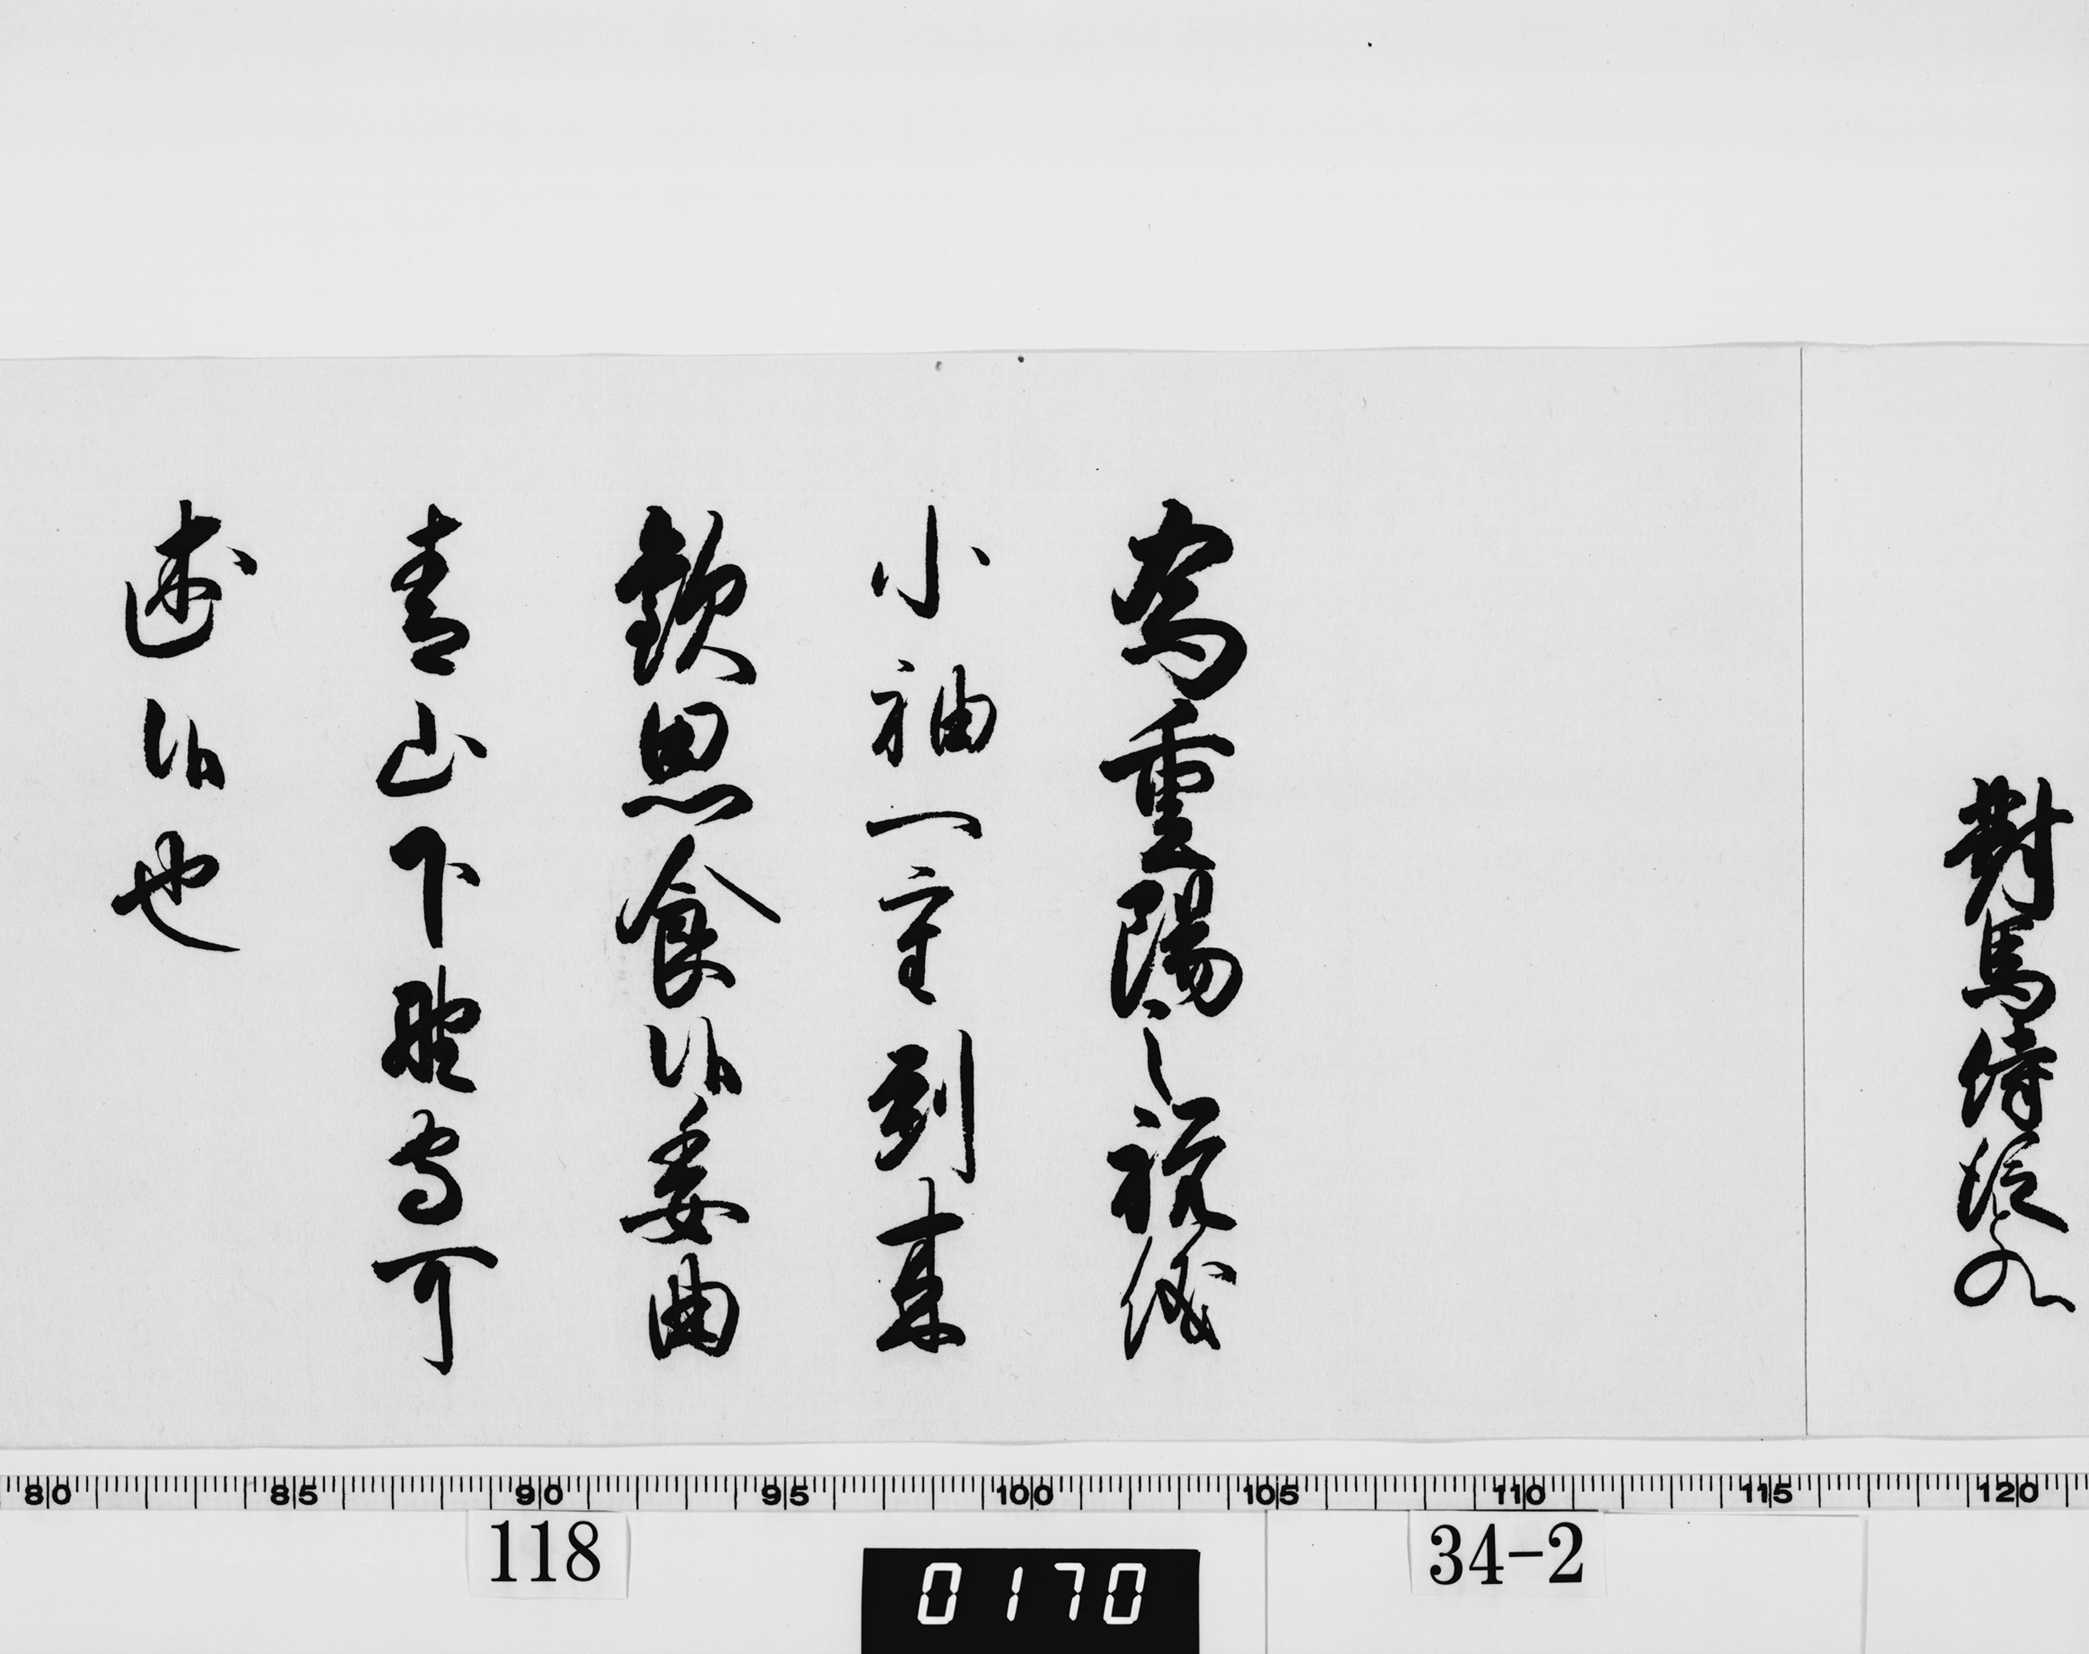 對馬侍従殿
為重陽之祝儀
小袖一重到来
歓思食候委曲
青山下野守可
述候也
80 85 90 95 100 105 110 115 120
118
0170
34-2